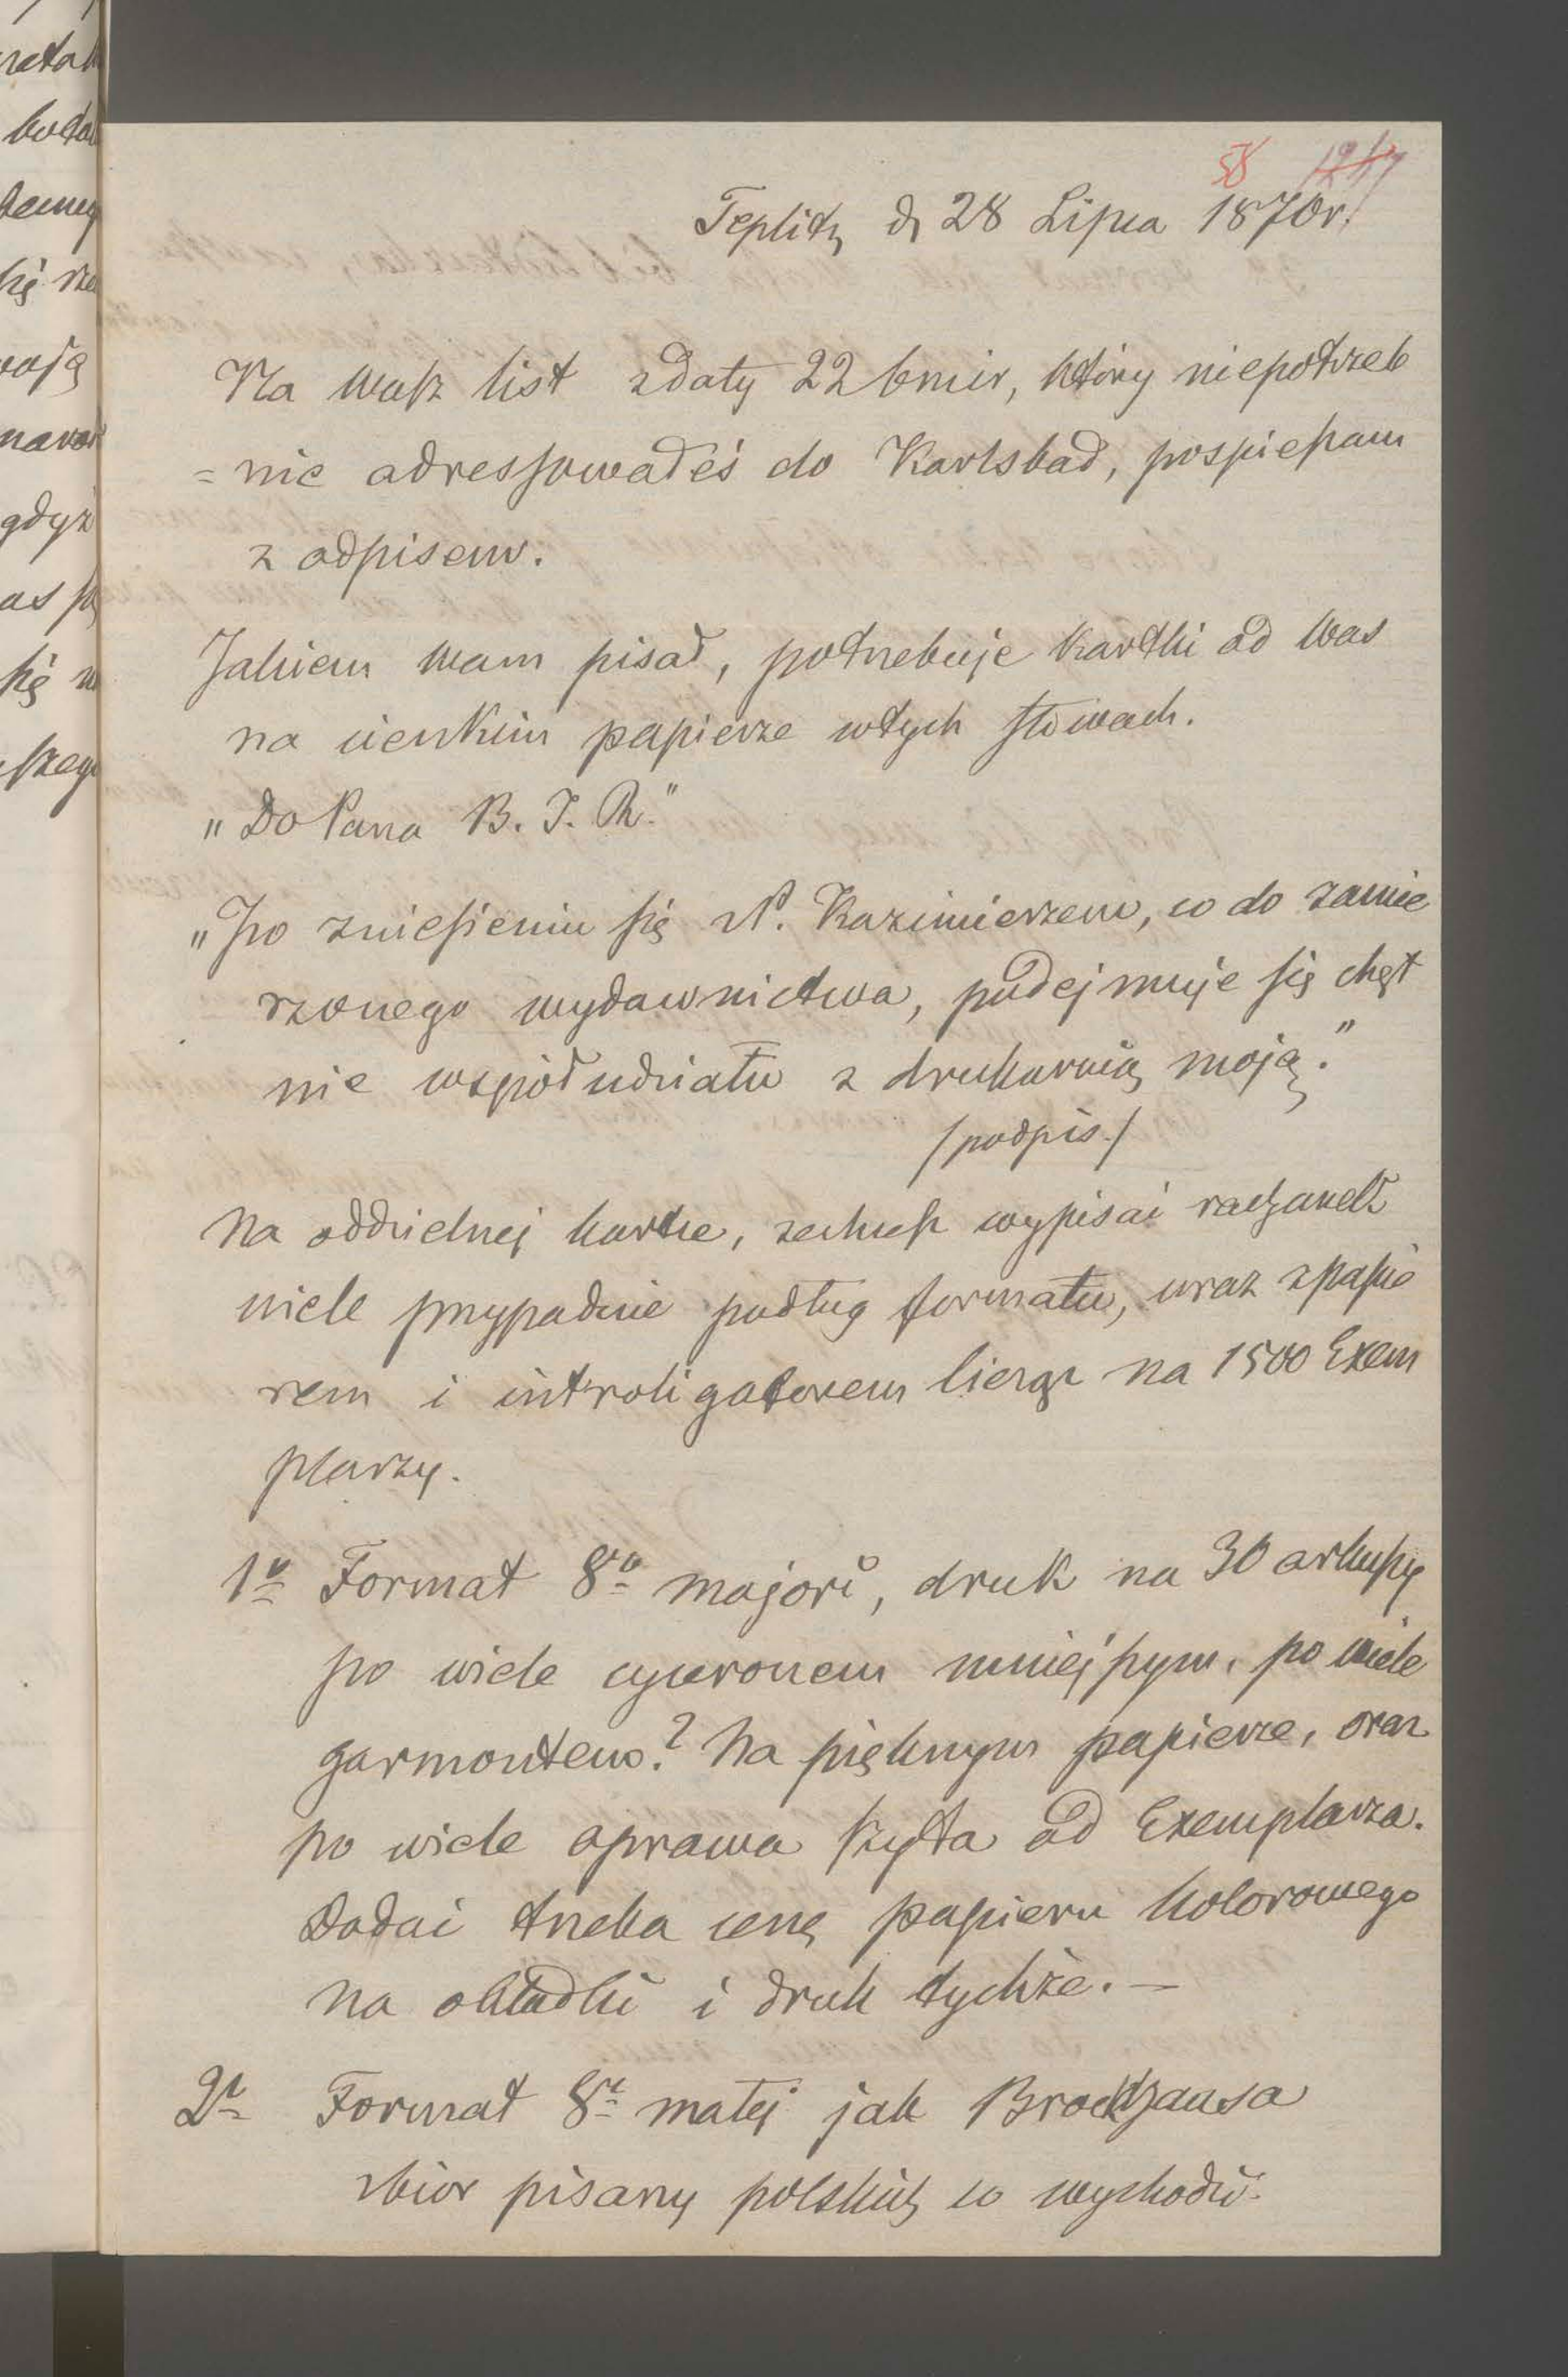 Teplitz d. 28 Lipca 1870r.
Na wasz list z daty 22 bmir, który niepotrzeb
= nie adressowałeś do Karlsbad, pospieszam
z odpisem.
Jakiem wam pisał, potrzebuję kartki od Was
na cienkim papierze w tych słowach.
„Do Pana B. J. R."
„Po zniesieniu się z P. Kazimierzem, co do zamie
rzonego wydawnictwa, podejmuję się chęt
nie współudziału z drukarnią moją."
/podpis./
Na oddzielnej kartce, zechcesz wypisać rachunek
wiele przypadnie podług formatu, wraz z papie
rem i introligatorem licząc na 1500 Exem
plarzy.
1o Format 8vo majori, druk na 30 arkuszy
po wiele cyceronem mniejszym, po wiele
garmontem? Na pięknym papierze, oraz
po wiele oprawa szyta od Exemplarza.
Dodać trzeba cenę papieru kolorowego
na okładki i druk tychże. —
2o Format 8ce małej jak Brockhausa
zbiór pisarzy polskich co wychodził.